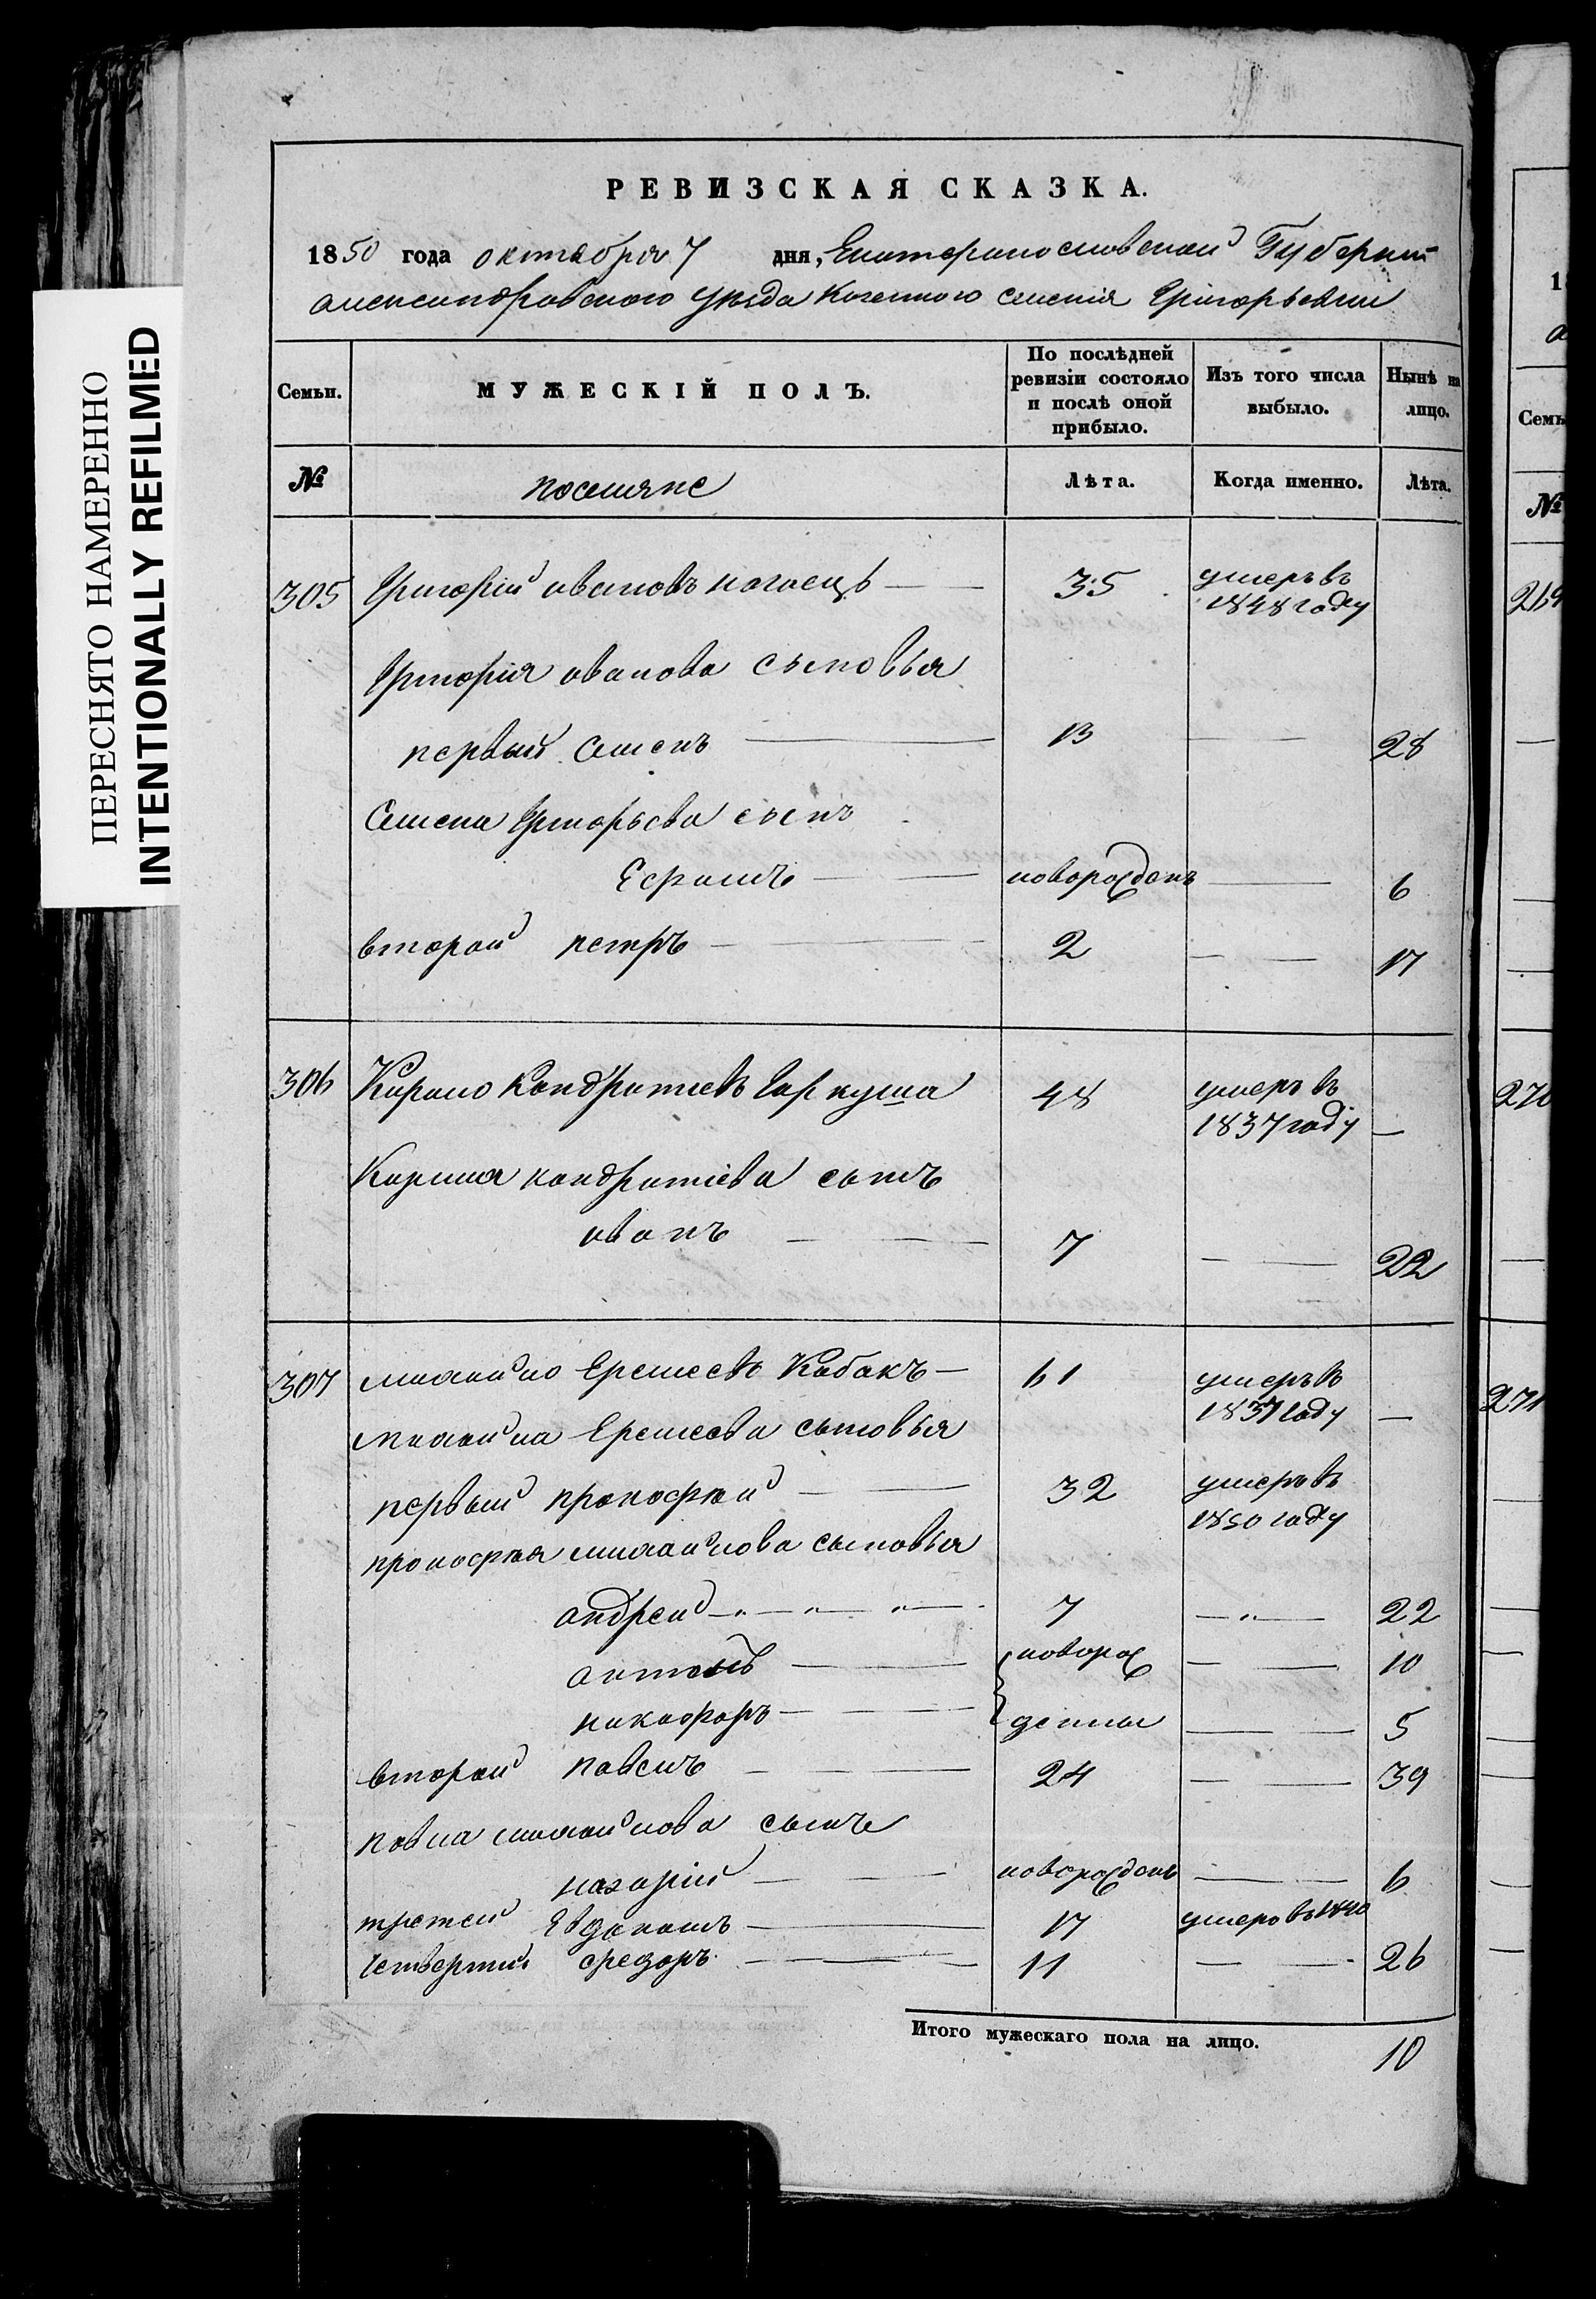 ПЕРЕСНЯТО НАМЕРЕННО
INTENTIONALLY REFILMED
РЕВИЗСКАЯ СКАЗКА.
1850 года октября 7 дня, Екатеринославской Губернии
александровского уѣзда Казенного селенія Григорьевки
Семьи. МУЖЕСКІЙ ПОЛЪ. По послѣдней ревизіи состояло и послѣ оной прибыло. Изъ того числа выбыло. Нынѣ на лицо.
№ поселяне Лѣта. Когда именно. Лѣта.
305 Григорій ивановъ нагаецъ 35 умеръ въ 1848 году
Григорія иванова сыновья
первый Семенъ 13 28
Семена Григорьева сынъ
Ефимъ новорожденъ 6
второй петръ 2 17
306 Кирило Кондратиевъ Гаркуша 48 умеръ въ 1837 году
Кирила кондратіева сынъ
иванъ 7 22
307 михайло Еремеевъ Кабакъ 61 умеръ въ 1837 году
михайла Еремеева сыновья
первый прокофѣй 32 умеръ въ 1850 году
прокофѣя михайлова сыновья
андрей 7 22
антонъ новорож 10
никифоръ денны 5
второй павелъ 24 39
павла михайлова сынъ
назарій новорожденъ 6
третей Евдокимъ 17 умеръ въ 1840
четвертый федоръ 11 26
Итого мужескаго пола на лицо. 10
1
а
Семь
№
269
270
271